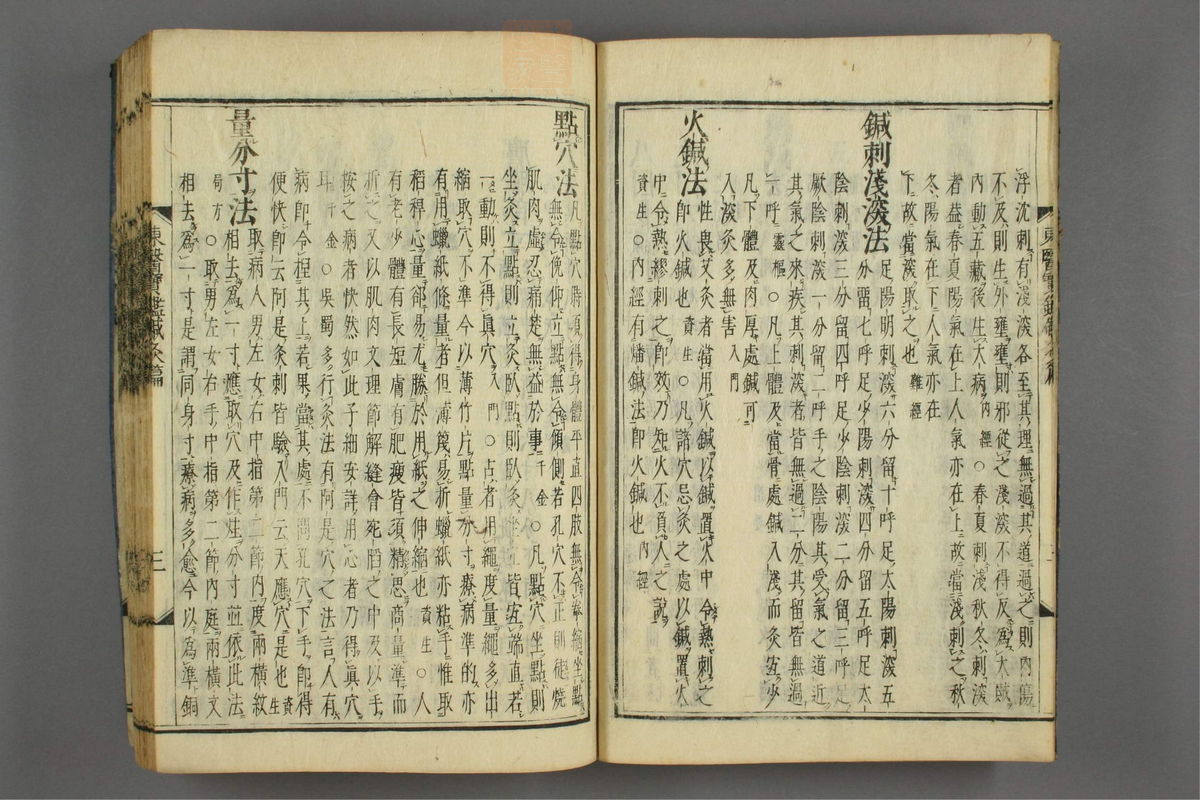 東醫寶鑑鍼灸篇
浮沈刺有淺深各至其理無過其道過之則內傷
不及則生外壅壅則邪從之淺深不得反爲大賊
內動五藏後生大病內經○春夏刺淺秋冬刺深
者益春夏陽氣在上人氣亦在上故當淺刺之秋
冬陽氣在下人氣亦在
下故當深取之也難經
鍼刺淺深法 足陽明刺深六分留十呼足太陽刺深五
分留七呼足少陽刺深四分留五呼足太
陰刺深三分留四呼足少陰刺深二分留三呼足
厥陰刺深一分留二呼手之陰陽其受氣之道近
其氣之來疾其刺深者皆無過二分其留皆無過
一呼靈樞○凡上體及當骨處鍼入淺而灸宜少
凡下體及肉厚處鍼可
入深灸多無害入門
火鍼法 性畏艾灸者當用火鍼以鍼置火中令熱刺之
即火鍼也資生○凡諸穴忌灸之處以鍼置火
中令熱繆刺之即效乃知火不負人之說
資生○內經有燔鍼法即火鍼也內經
點穴法 凡點穴時須得身體平直四肢無令拳縮坐點
無令俛仰立點無令傾側若孔穴不正則徒燒
肌肉虛忍痛楚無益於事千金○凡點穴坐點則
坐灸立點則立灸臥點則臥灸坐立皆宜端直若
一動則不得眞穴入門○古者用繩度量繩多出
縮取穴不準今以薄竹片點量分寸療病準的亦
有用蠟紙條量者但薄篾易折蠟紙亦粘手惟取
稻稈心量却易尤勝於用紙之伸縮也資生○人
有老少體有長短膚有肥瘦皆須精思商量準而
折之又以肌肉文理節解縫會宛陷之中及以手
按之病者快然如此子細安詳用心者乃得眞穴
耳千金○吳蜀多行灸法有阿是穴之法言人有
病即令捏其上若果當其處不問孔穴下手即得
便快即云阿是灸刺皆驗入門云天應穴是也資生
量分寸法 取病人男左女右中指第二節內度兩橫紋
相去爲一寸應取穴及作炷分寸並依此法
局方○取男左女右手中指第二節內庭兩橫文
相去爲一寸是謂同身寸療病多愈今以爲準銅
東醫寶鑑鍼灸篇 三